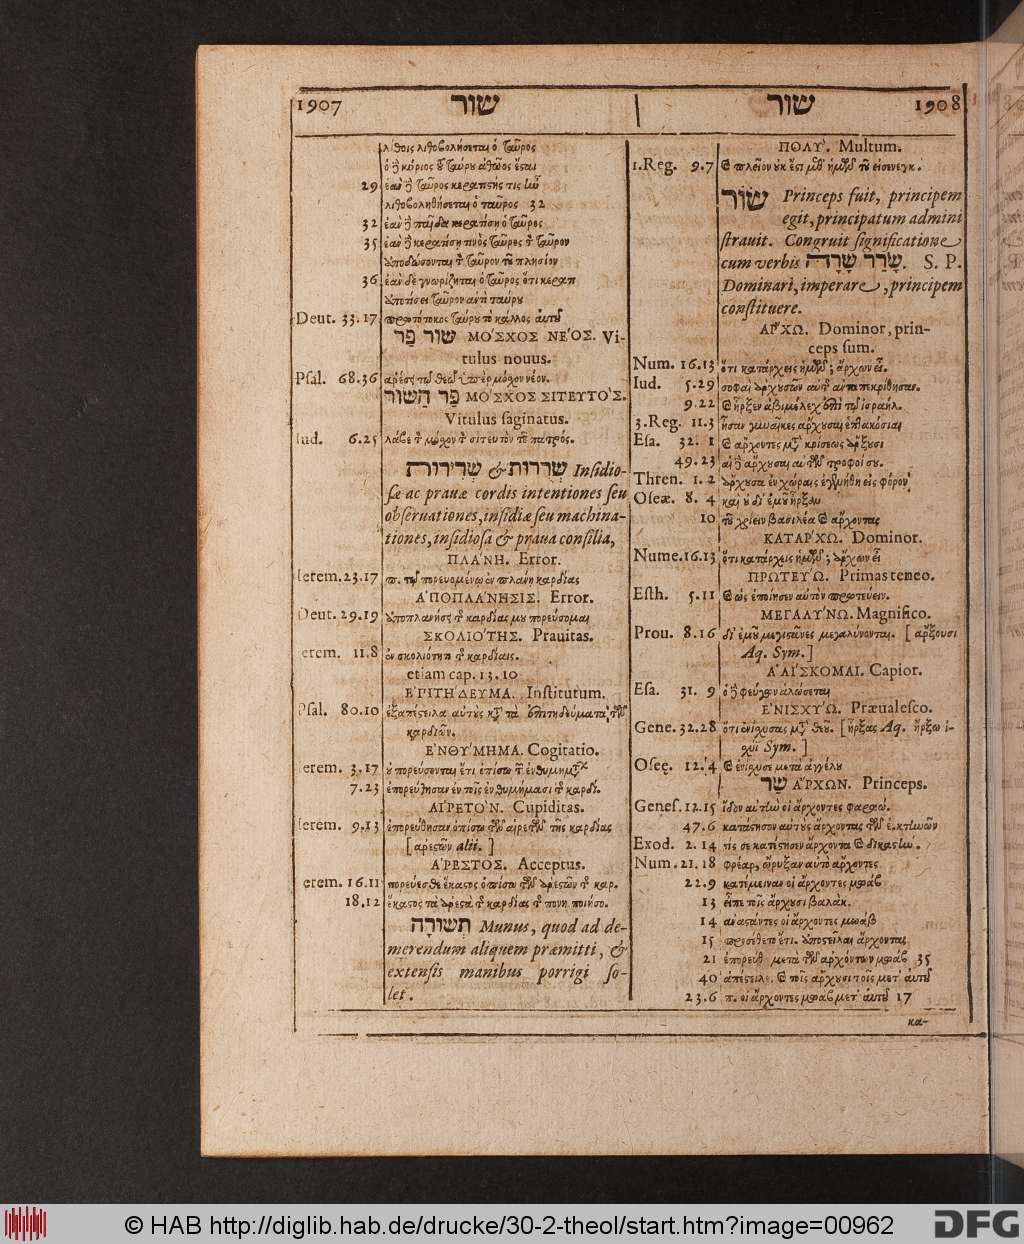 1907 שור
λίθοις λιθοβολήσεται ὁ ταῦρος
ὁ ἢ κύριος τοῦ ταύρου ἀθῶος ἔσται
29 ἐὰν ἢ ταῦρος κερατιστὴς τις
λιθοβοληθήσεται ὁ ταῦρος 32
32 ἐὰν ἢ παῖδα κερατίσῃ ὁ ταῦρος
35 ἐὰν ἢ κερατίσῃ τινὸς ταῦρος τὸν ταῦρον
ἀποδώσονται τὸν ταῦρον τοῦ πλησίον
36 ἐὰν δὲ γνωρίζηται ὁ ταῦρος ὅτι κερατ
ἀποτίσει ταῦρον ἀντὶ ταύρου
Deut. 33.17 πρωτότοκος ταύρου τὸ κάλλος αὐτοῦ
שור פר ΜΟΣΧΟΣ ΝΕΟΣ. Vi-
tulus nouus.
Psal. 68.36 ἀρέσει τῷ θεῷ ὑπὲρ μόσχον νέον.
פַּר הַשּׁוֹר ΜΟΣΧΟΣ ΣΙΤΕΥΤΟΣ.
Vitulus saginatus.
Iud. 6.25 λάβε τὸν μόσχον τὸν σιτευτὸν τοῦ πατρός.
שְׁרִרוּת & שְׁרִירוּת Insidio-
sæ ac prauæ cordis intentiones seu
obseruationes, insidiæ seu machina-
tiones, insidiosa & praua consilia,
ΠΛΑΝΗ. Error.
Ierem. 23.17 π. τῷ πορευομένῳ ἐν πλάνῃ καρδίας
ΑΠΟΠΛΑΝΗΣΙΣ. Error.
Deut. 29.19 ἀποπλανήσει τῆς καρδίας μου πορεύσομαι
ΣΚΟΛΙΟΤΗΣ. Prauitas.
erem. 11.8 ἐν σκολιότητι τῆς καρδίας.
etiam cap. 13.10
ΕΠΙΤΗΔΕΥΜΑ. Institutum.
Psal. 80.10 ἐξαπέστειλα αὐτοὺς κατὰ τὰ ἐπιτηδεύματα τῶν
καρδιῶν.
ΕΝΘΥΜΗΜΑ. Cogitatio.
erem. 3.17 οὐ πορεύσονται ἔτι ὀπίσω τῶν ἐνθυμημάτων
7.23 ἐπορεύθησαν ἐν τοῖς ἐνθυμήμασι τῆς καρδί.
ΑΙΡΕΤΟΝ. Cupiditas.
Ierem. 9.13 ἐπορεύθησαν ὀπίσω τῶν αἱρετῶν τῆς καρδίας
[ ἀρεστῶν alii. ]
ΑΡΕΣΤΟΣ. Acceptus.
erem. 16.11 πορεύεσθε ἕκαστος ὀπίσω τῶν ἀρεστῶν τῆς καρ.
18.12 ἕκαστος τὰ ἀρεστὰ τῆς καρδίας τῆς πονη. ποιήσο.
תְּשׁוּרָה Munus, quod ad de-
merendum aliquem præmitti, &
extensis manibus porrigi so-
let.
שור 1908
ΠΟΛΥ. Multum.
1.Reg. 9.7 καὶ πλεῖον οὐκ ἔστι μεθ' ἡμῶν τοῦ εἰσενεγκ.
שׂוֹר Princeps fuit, principem
egit, principatum admini
strauit. Congruit significatione
cum verbis שָׂרַר שָׂרָה. S. P.
Dominari, imperare, principem
constituere.
ΑΡΧΩ. Dominor, prin-
ceps sum.
Num. 16.13 ὅτι κατάρχεις ἡμῶν; ἄρχων εἶ.
Iud. 5.29 σοφαὶ ἀρχουσῶν αὐτῆς ἀνταπεκρίθησαν.
9.22 καὶ ἦρξεν ἀβιμέλεχ ἐπὶ τὸν ἰσραήλ.
3.Reg. 11.3 ἦσαν γυναῖκες ἄρχουσαι ἑπτακόσιαι
Esa. 32. 1 καὶ ἄρχοντες μετὰ κρίσεως ἄρξουσι
49.23 αἱ ἢ ἄρχουσαι αὐτῶν τροφοί σου.
Thren. 1. 2 ἄρχουσα ἐν χώραις ἐγενήθη εἰς φόρον
Oseæ. 8. 4 καὶ οὐ δι' ἐμοῦ ἦρξαν
10 τοῦ χρίειν βασιλέα καὶ ἄρχοντας
ΚΑΤΑΡΧΩ. Dominor.
Nume. 16.13 ὅτι κατάρχεις ἡμῶν; ἄρχων εἶ
ΠΡΩΤΕΥΩ. Primas teneo.
Esth. 5.11 καὶ ὡς ἐποίησεν αὐτὸν πρωτεύειν.
ΜΕΓΑΛΥΝΩ. Magnifico.
Prou. 8.16 δι' ἐμοῦ μεγιστᾶνες μεγαλύνονται. [ ἄρξουσι
Aq. Sym. ]
ΑΛΙΣΚΟΜΑΙ. Capior.
Esa. 31. 9 ὁ ἢ φεύγων ἁλώσεται
ΕΝΙΣΧΥΩ. Præualesco.
Gene. 32.28 ὅτι ἐνίσχυσας μετὰ θεοῦ. [ ἦρξας Aq. ἤρξω ἰ-
Sym. ]
Oseę. 12.4 καὶ ἐνίσχυσε μετὰ ἀγγέλου
שַׂר ΑΡΧΩΝ. Princeps.
Genes. 12.15 ἴδον αὐτὴν οἱ ἄρχοντες φαραώ.
47.6 κατάστησον αὐτοὺς ἄρχοντας τῶν ἐ. κτηνῶν
Exod. 2. 14 τίς σε κατέστησεν ἄρχοντα καὶ δικαστὴν.
Num. 21. 18 φρέαρ, ὤρυξαν αὐτὸ ἄρχοντες
22.9 κατέμειναν οἱ ἄρχοντες μωάβ
13 εἶπε τοῖς ἄρχουσι βαλάκ.
14 ἀναστάντες οἱ ἄρχοντες μωάβ
15 προσέθετο ἔτι. ἀποστεῖλαι ἄρχοντας
21 ἐπορεύθ μετὰ τῶν ἀρχόντων μωάβ 35
40 ἀπέστειλε. καὶ τοῖς ἄρχουσι τοῖς μετ' αὐτοῦ
23.6 π. οἱ ἄρχοντες μωάβ μετ' αὐτοῦ 17
κα-
© HAB http://diglib.hab.de/drucke/30-2-theol/start.htm?image=00962
DFG